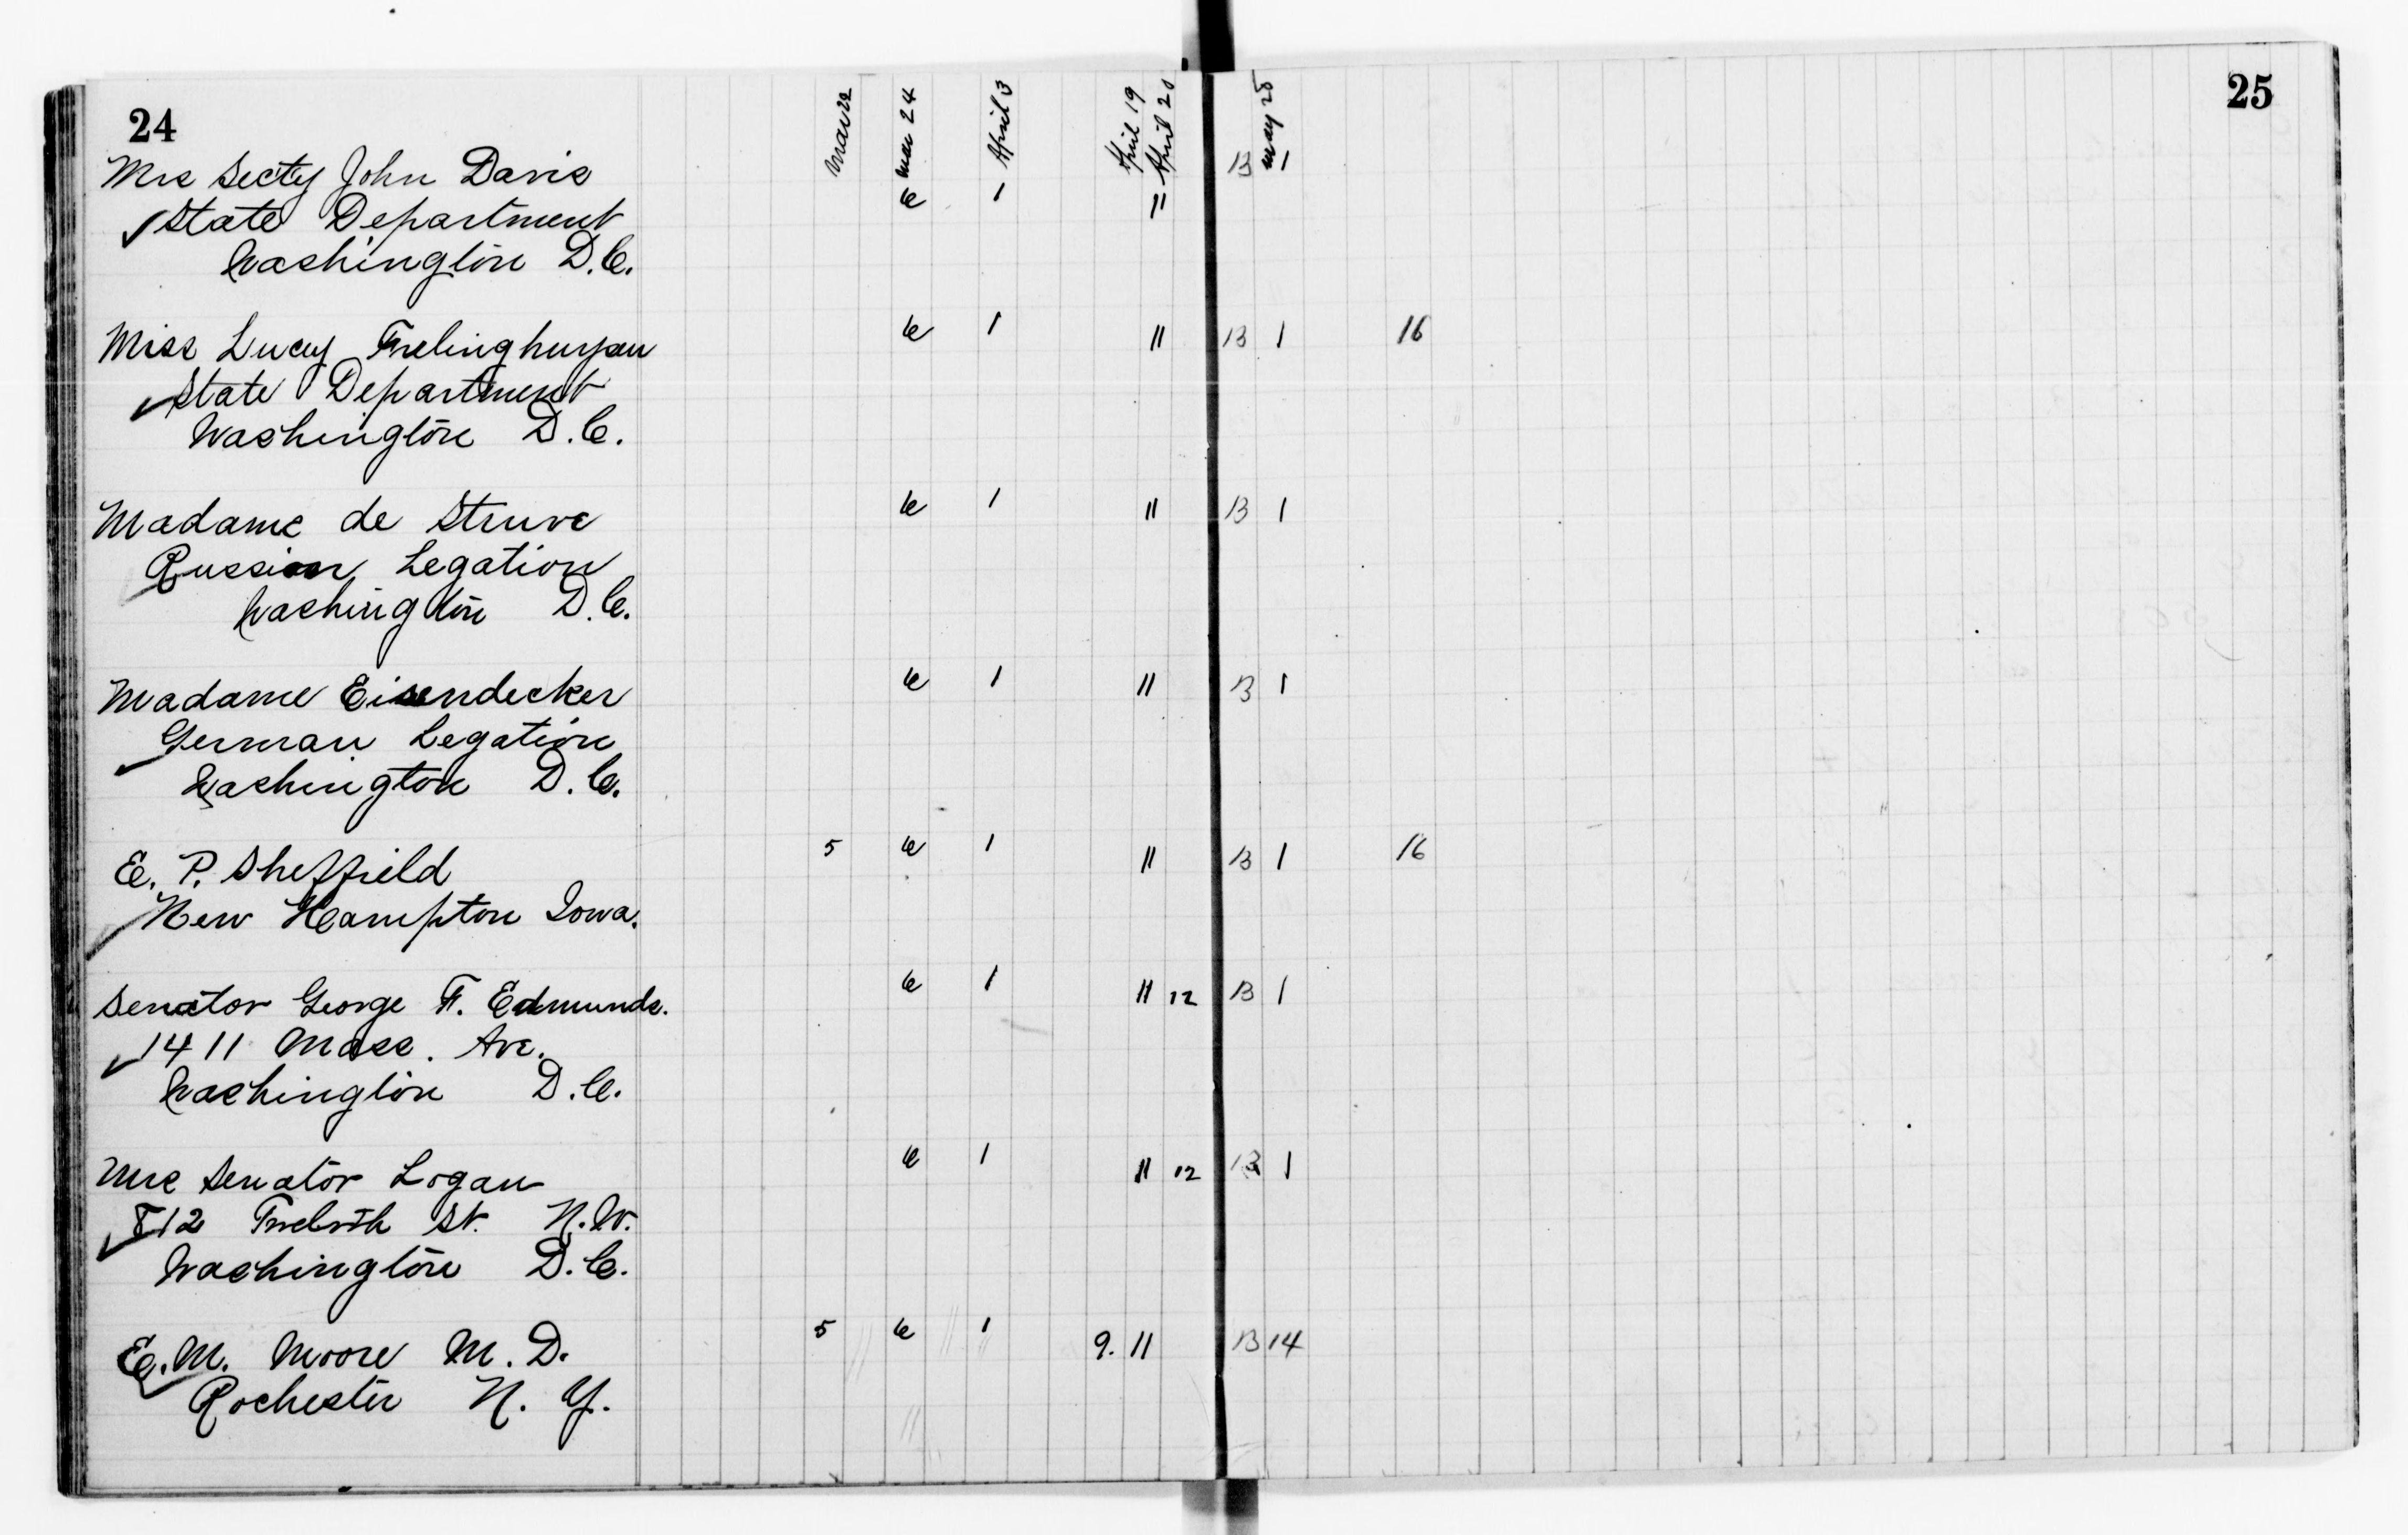 24
25
Mar 22 Mar 24 April 3 April 19 April 20 May 25
Mrs Secty John Davis 6 1 11 13 1
State Department
Washington D.C.
Miss Lucy Frelinghuysen 6 1 11 13 1 16
State Department
Washington D.C.
Madame de Struve 6 1 11 13 1
Russian Legation
Washington D.C.
Madame Eisendecker 6 1 11 13 1
German Legation
Washington D.C.
E. P. Sheffield 5 6 1 11 13 1 16
New Hampton Iowa.
Senator George F. Edmunds. 6 1 11 12 13 1
1411 Mass. Ave.
Washington D.C.
Mrs Senator Logan 6 1 11 12 13 1
812 Twelvth St. N.W.
Washington D.C.
E. M. Moore M.D. 5 6 1 9. 11 13 14
Rochester N.Y.